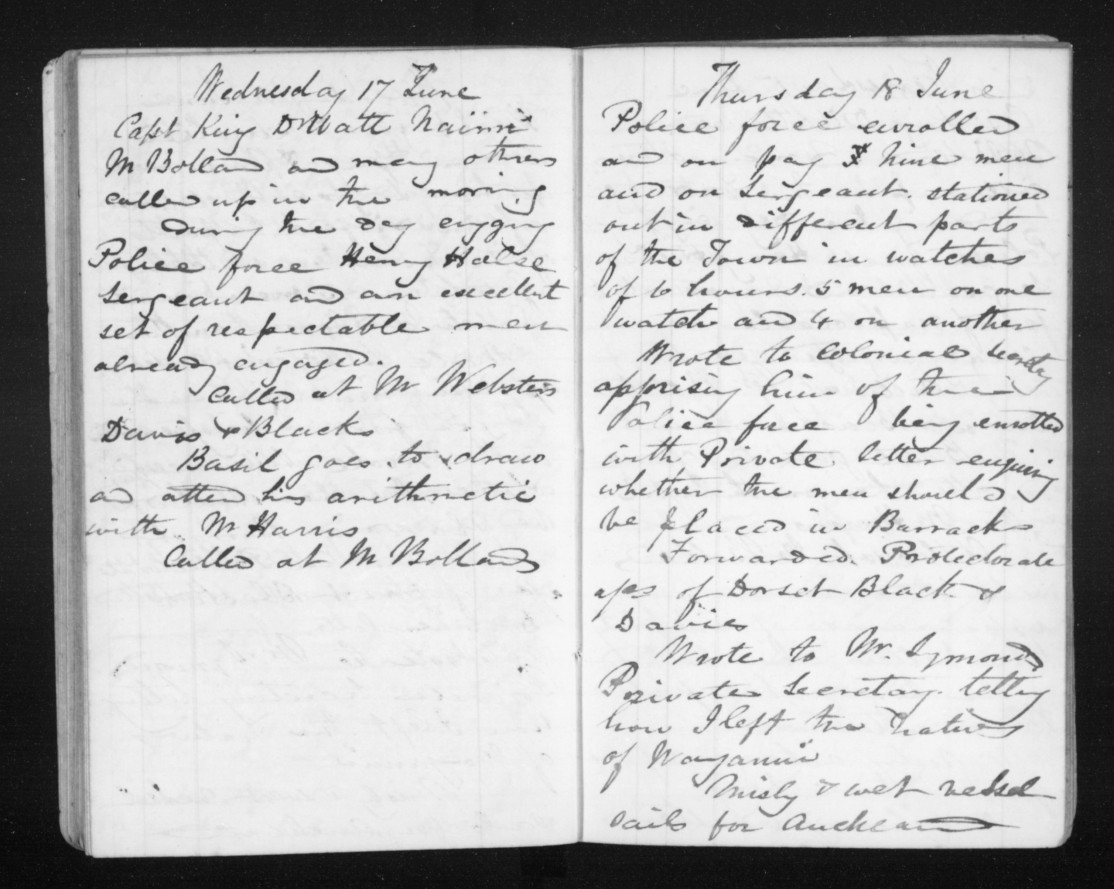 Wednesday 17 June
Capt King Dr Watt Nairn
Mr Bolland and many others
called up in the morning
During the day engaging
Police force Henry Halse
Sergeant and an excellent
set of respectable men
already engaged.
Called at Mr Websters
Davis & Blacks
Basil goes to draw
and attend his arithmetic
with Mr Harris
Called at Mr Bollands
Thursday 18 June
Police force enrolled
and on pay nine men
and on Sergeant stationed
out in different parts
of the Town in watches
of 6 hours. 5 men on one
watch and 4 on another
Wrote to Colonial Secretary
apprising him of the
Police force being enrolled
with Private letter enquiring
whether the men should
be placed in Barracks
Forwarded Protectorate
of Dorset Black &
Davies
Wrote to Mr. Symonds
Private Secretary telling
how I left the natives
of Wanganui
Misty & wet vessel
sails for Auckland